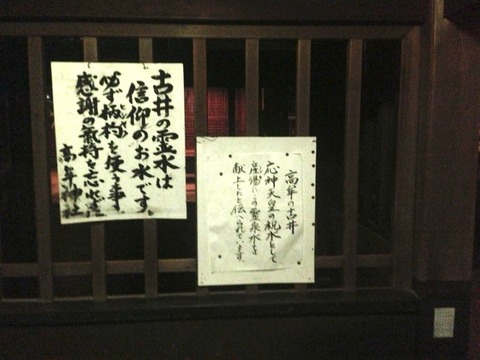 古井の霊水は
信仰のお水です。
必ず柄杓を使う事。
感謝の氣持を忘れ
高牟神社
高牟の古井
応神天皇の祝水として
産湯にこの霊泉水を
献上したと伝へられています。